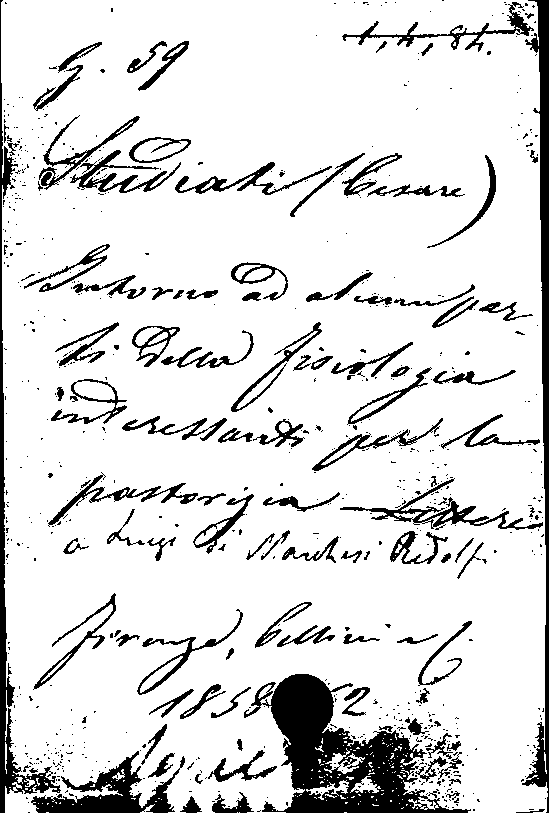 1, 4, 84.
G. 59
Studiati (Cesare)
Intorno ad alcune par-
ti della fisiologia
interessanti per la
pastorizia - Lettere
a Luigi dei Marchesi Ridolfi
Firenze, Cellini e C.
1858 62